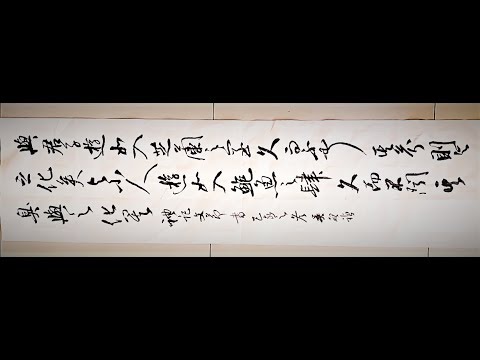 與君子遊如入芝蘭之室久而不聞其芳
之化矣与小人遊如入鮑魚之肆久而不聞其
臭與之化矣 禮記